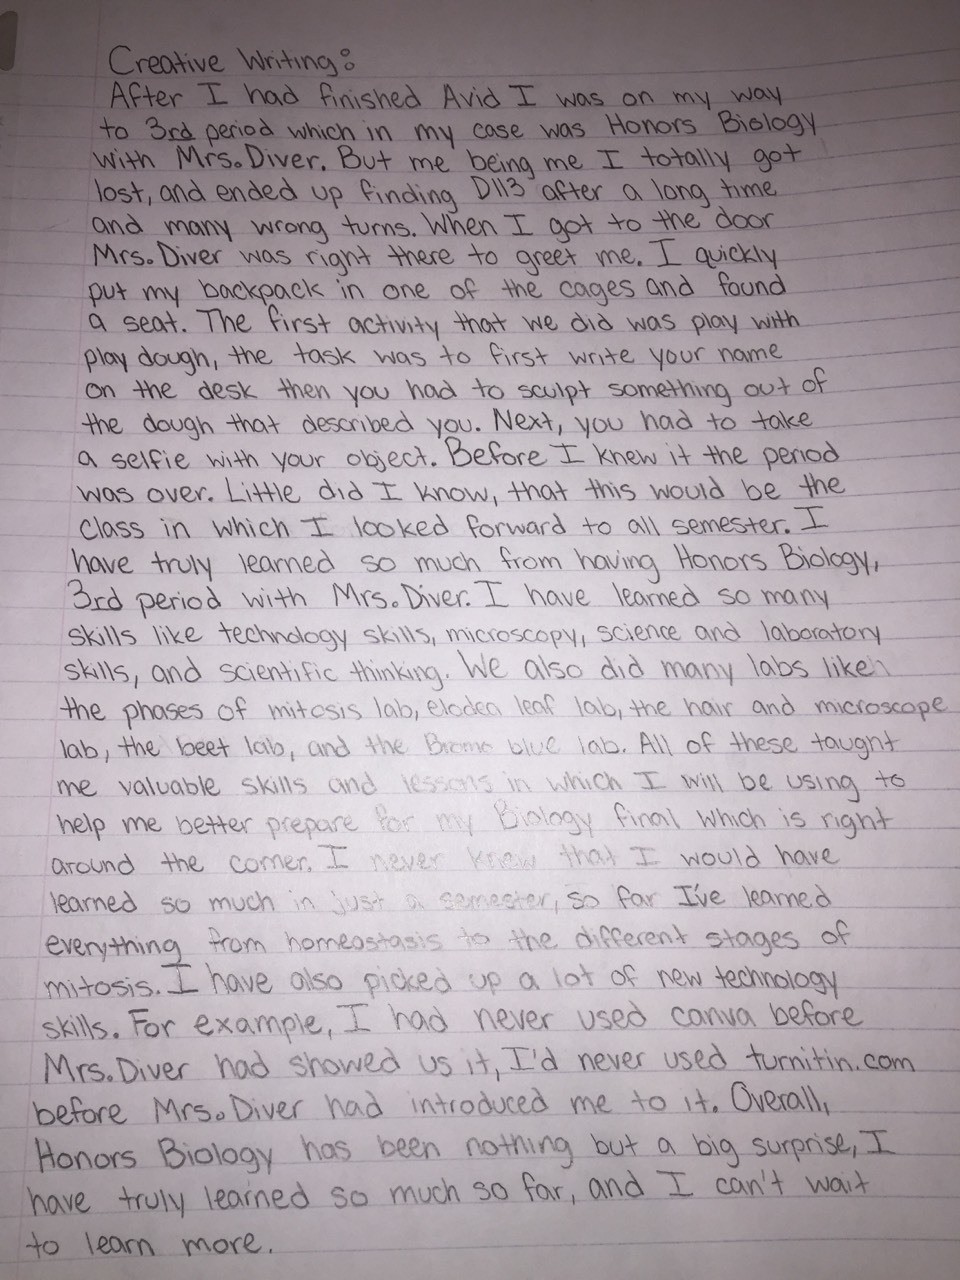 Creative Writing:
After I had finished Avid I was on my way
to 3rd period which in my case was Honors Biology
with Mrs. Diver. But me being me I totally got
lost, and ended up finding D113 after a long time
and many wrong turns. When I got to the door
Mrs. Diver was right there to greet me. I quickly
put my backpack in one of the cages and found
a seat. The first activity that we did was play with
play dough, the task was to first write your name
on the desk then you had to sculpt something out of
the dough that described you. Next, you had to take
a selfie with your object. Before I knew it the period
was over. Little did I know, that this would be the
class in which I looked forward to all semester. I
have truly learned so much from having Honors Biology,
3rd period with Mrs. Diver. I have learned so many
skills like technology skills, microscopy, science and laboratory
skills, and scientific thinking. We also did many labs like
the phases of mitosis lab, elodea leaf lab, the hair and microscope
lab, the beet lab, and the Bromo blue lab. All of these taught
me valuable skills and lessons in which I will be using to
help me better prepare for my Biology final which is right
around the corner. I never knew that I would have
learned so much in just a semester, so far I've learned
everything from homeostasis to the different stages of
mitosis. I have also picked up a lot of new technology
skills. For example, I had never used canva before
Mrs. Diver had showed us it, I'd never used turnitin.com
before Mrs. Diver had introduced me to it. Overall,
Honors Biology has been nothing but a big surprise, I
have truly learned so much so far, and I can't wait
to learn more.